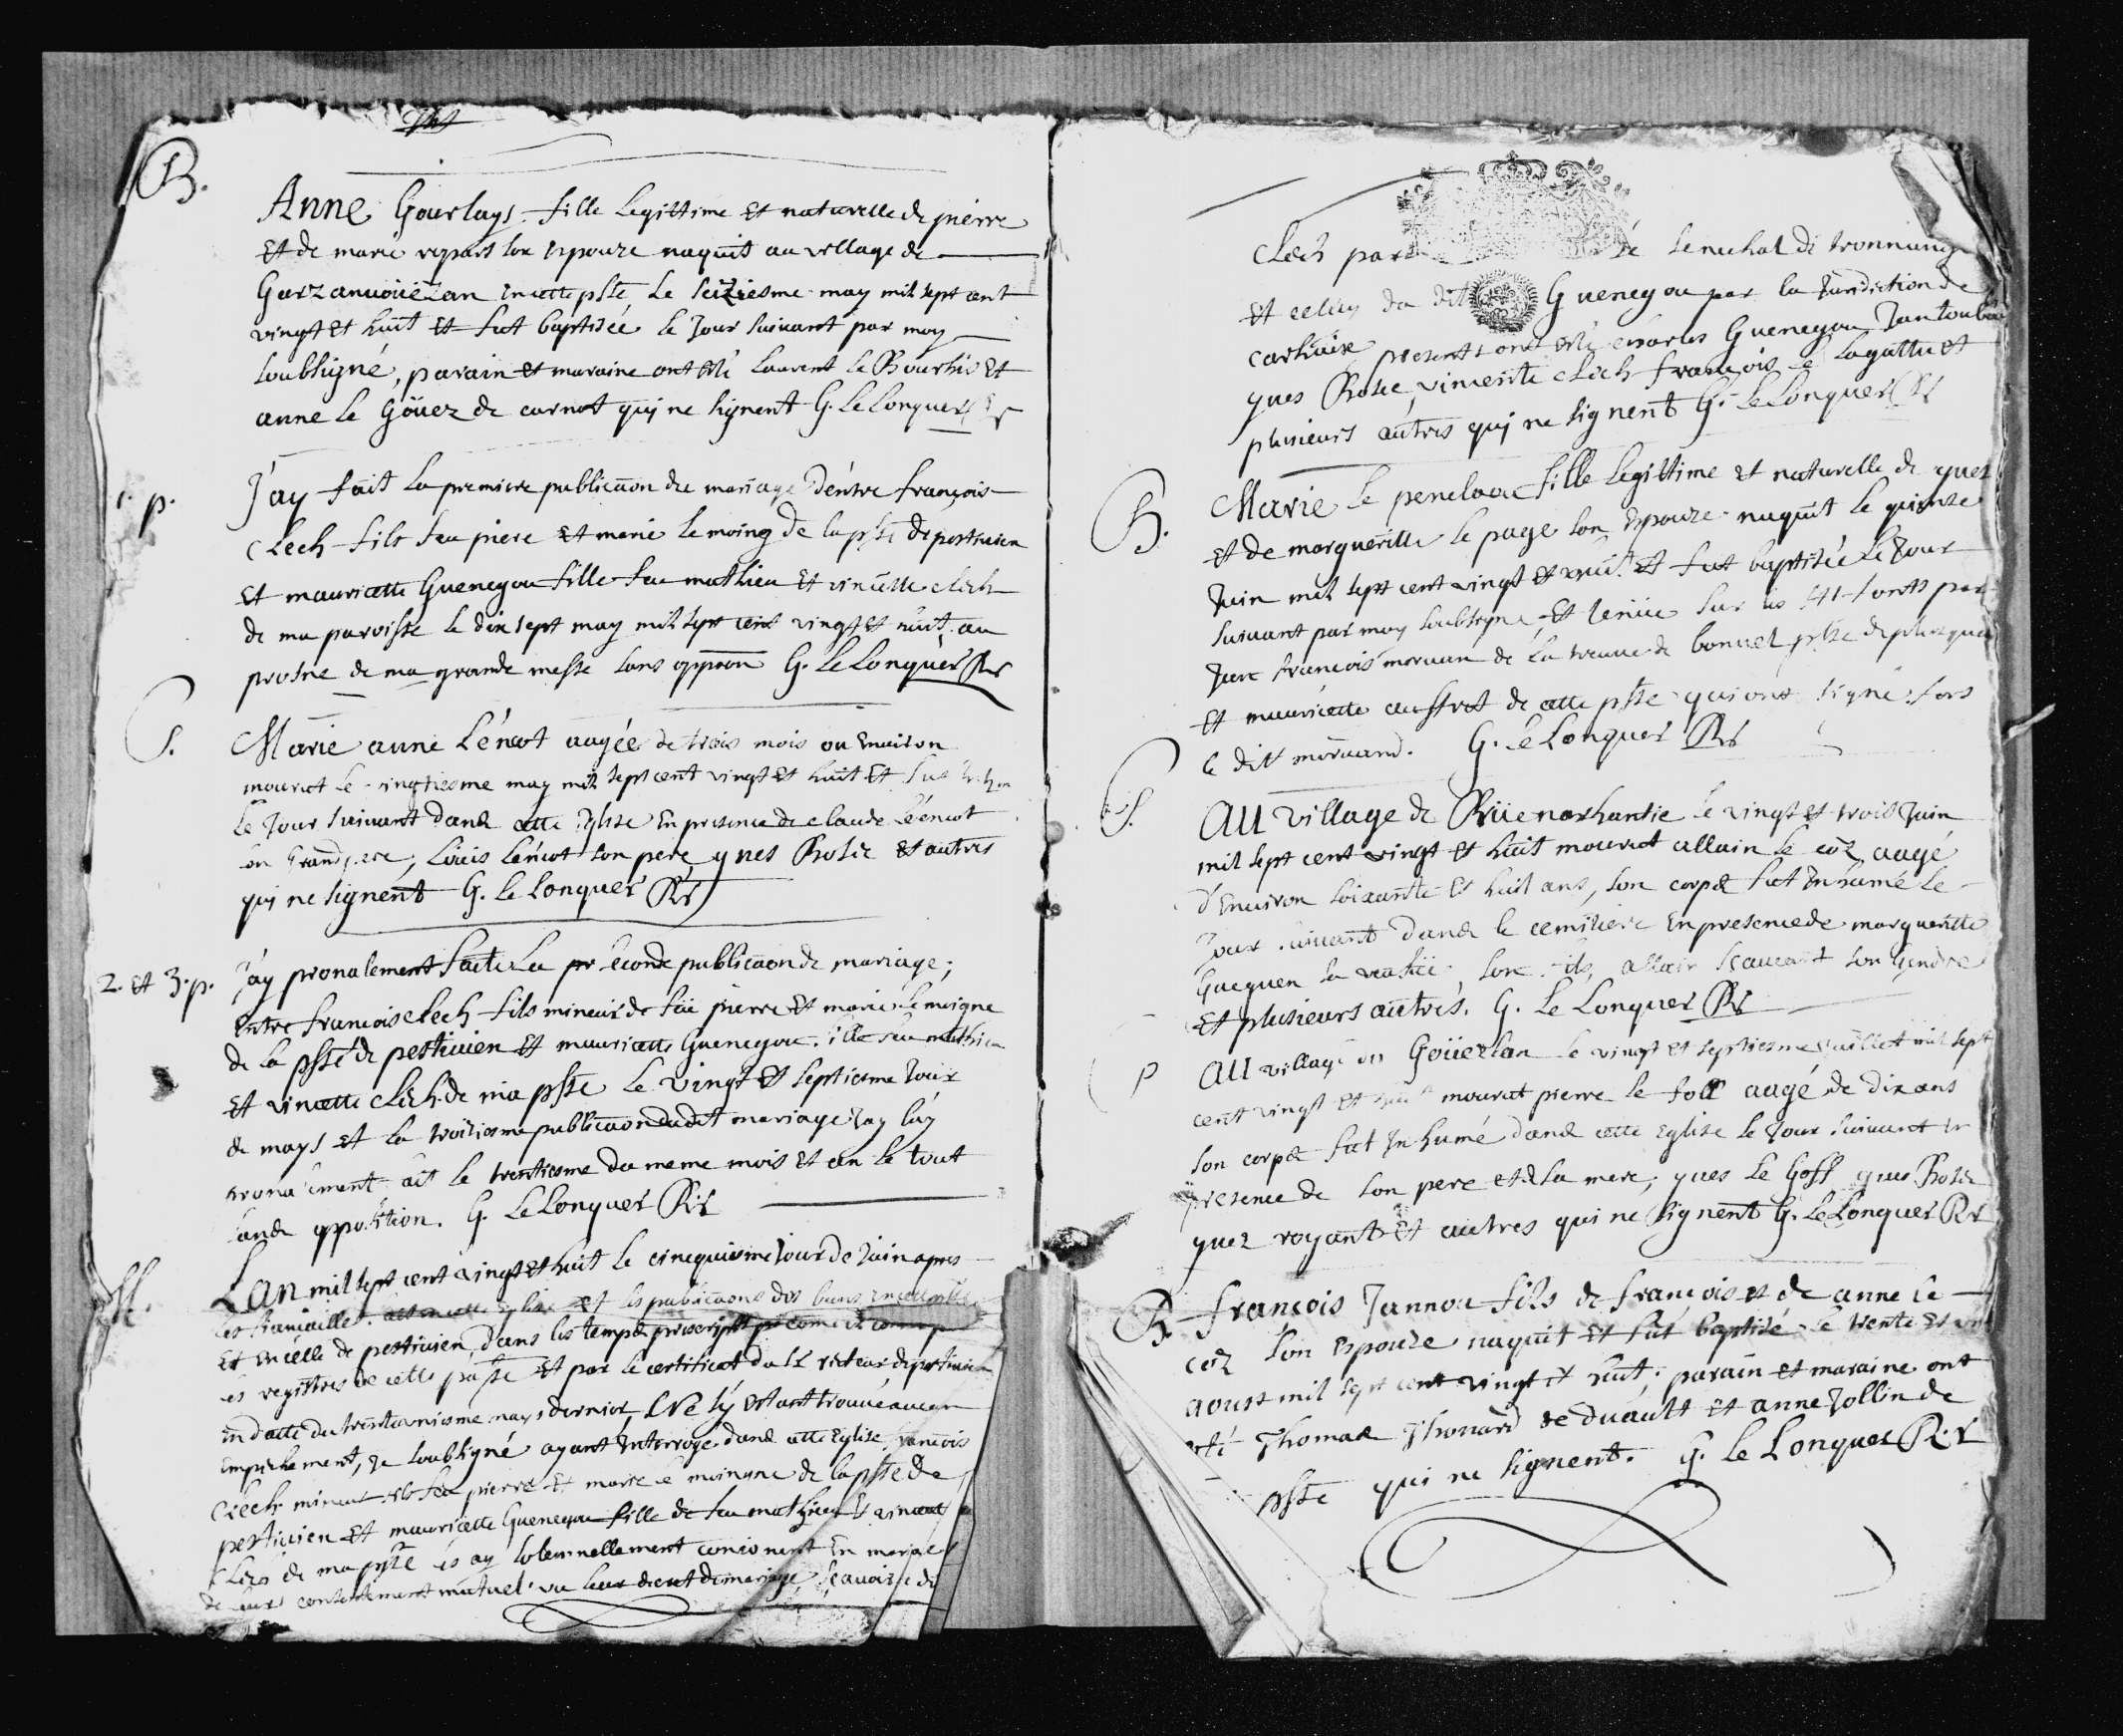 B.
Anne Gourlays fille legittime et naturelle de pierre
Et de marie son Espouze naquit au village de
Garzanuoüézan En cette pste Le seiziesme may mil sept cent
vingt et huit et fut baptisée le Jour suivant par moy
soubsigné, parain et maraine ont esté Laurent le Bourhis et
anne le Goüez de carnot qui ne signent G. Le Lonquer Rr
1. p.
J'ay fait La premiere publicaon du mariage d'entre françois
Clech fils feu piere et marie le moing de la pste de pestiuien
Et mauricette Guenegou fille feu mathieu Et vincette clech
de ma paroisse le dix sept may mil sept cent vingt et huit au
prosne de ma grande messe sans oppoon G. Le Lonquer Rr
S.
Marie anne Léncot aagée de trois mois ou Enuiron
mourut le vingtiesme may mil sept cent vingt et huit Et fut
Le Jour suiuant dans cette Eglise En presence de claude Léncot
son Grand pere, Loüis Léncot son pere yues Rosec et autres
qui ne signent G. Le Lonquer Rr
2. et 3. p.
J'ay pronalement faite La pr seconde publicaon de mariage,
Entre francois clech fils mineur de feü pierre Et marie Le moigne
de la pste de pestiuien Et mauricette Guenegou fille feu mathieu
Et vincette clech de ma pste Le vingt et septiesme Jour
de mays et la troisiesme publicaon dudit mariage J'ay
le trentiesme du meme mois et an le tout
sans opposition. G. Le Lonquer Rr
M.
L'an mil sept cent vingt et huit le cincquiesme Jour de Juin apres
les fiancailles Eglise et les publicaons des bans
Et En celle de pestiuien, dans les temps prescripts
es registres de cette pste Et par le certificat du Sr recteur de pestiuien
En datte du trente mays dernier, Ne s'y estant trouvé aucun
Empeschement, Je soubsigné ayant Interrogé dans cette Eglise, francois
Clech mineur fils feu pierre Et marie le moingne de la pste de
pestiuien Et mauricette Guenegou fille de feu mathieu Et vincette
Clech de ma pste les ay solemnellement conioinct En mariage
de leurs consentement mutuel vu leur decret de mariage, scauoir le dit
Clech par senechal de
Et celuy du dit Guenegou par la Jurisdiction de
carhaix presents ont esté charles Guenegou,
yues Rosec, vincente clech françois le Lagattu et
plusieurs autres qui ne signent G. Le Lonquer Rr
B.
Marie le penelaou fille Legittime et naturelle de yues
Et de margueritte le page son Espouze naquit le quinze
Juin mil sept cent vingt et huit Et fut baptisée le Jour
suiuant par moy soubsigné Et tenüe sur les fonts par
francois moruan de la treue de bonnet
Et mauricette auffret de cette pste qui ont signé fors
le dit moruand. G. Le Lonquer Rr
S.
Au village de Rüenarhantic le vingt et trois Juin
mil sept cent vingt et huit mourut allain le coz, aagé
d'Enuiron soixante Et huit ans, son corps fut Inhumé le
Jour suiuant dans le cemitiere En presence de margueritte
Gueguen sa son fils, allain son gendre
Et plusieurs autres. G. Le Lonquer Rr
Au village du Goüezlan le vingt et septiesme Juillet mil sept
cent vingt et huit mourut pierre le foll aagé de dix ans
son corps fut Inhumé dans cette Eglise le Jour suiuant En
presence de son pere et de sa mere, yues le Goff yues Rosec
yuez royant Et autres qui ne signent G. Le Lonquer Rr
B.
françois Jannou fils de françois et de anne le
coz son Espouse naquit Et fut baptisé le trente et un
aoust mil sept cent vingt et huit. parain et maraine ont
esté Thomas Thomard de duault et anne Jollin de
pste qui ne signent. G. Le Lonquer Rr